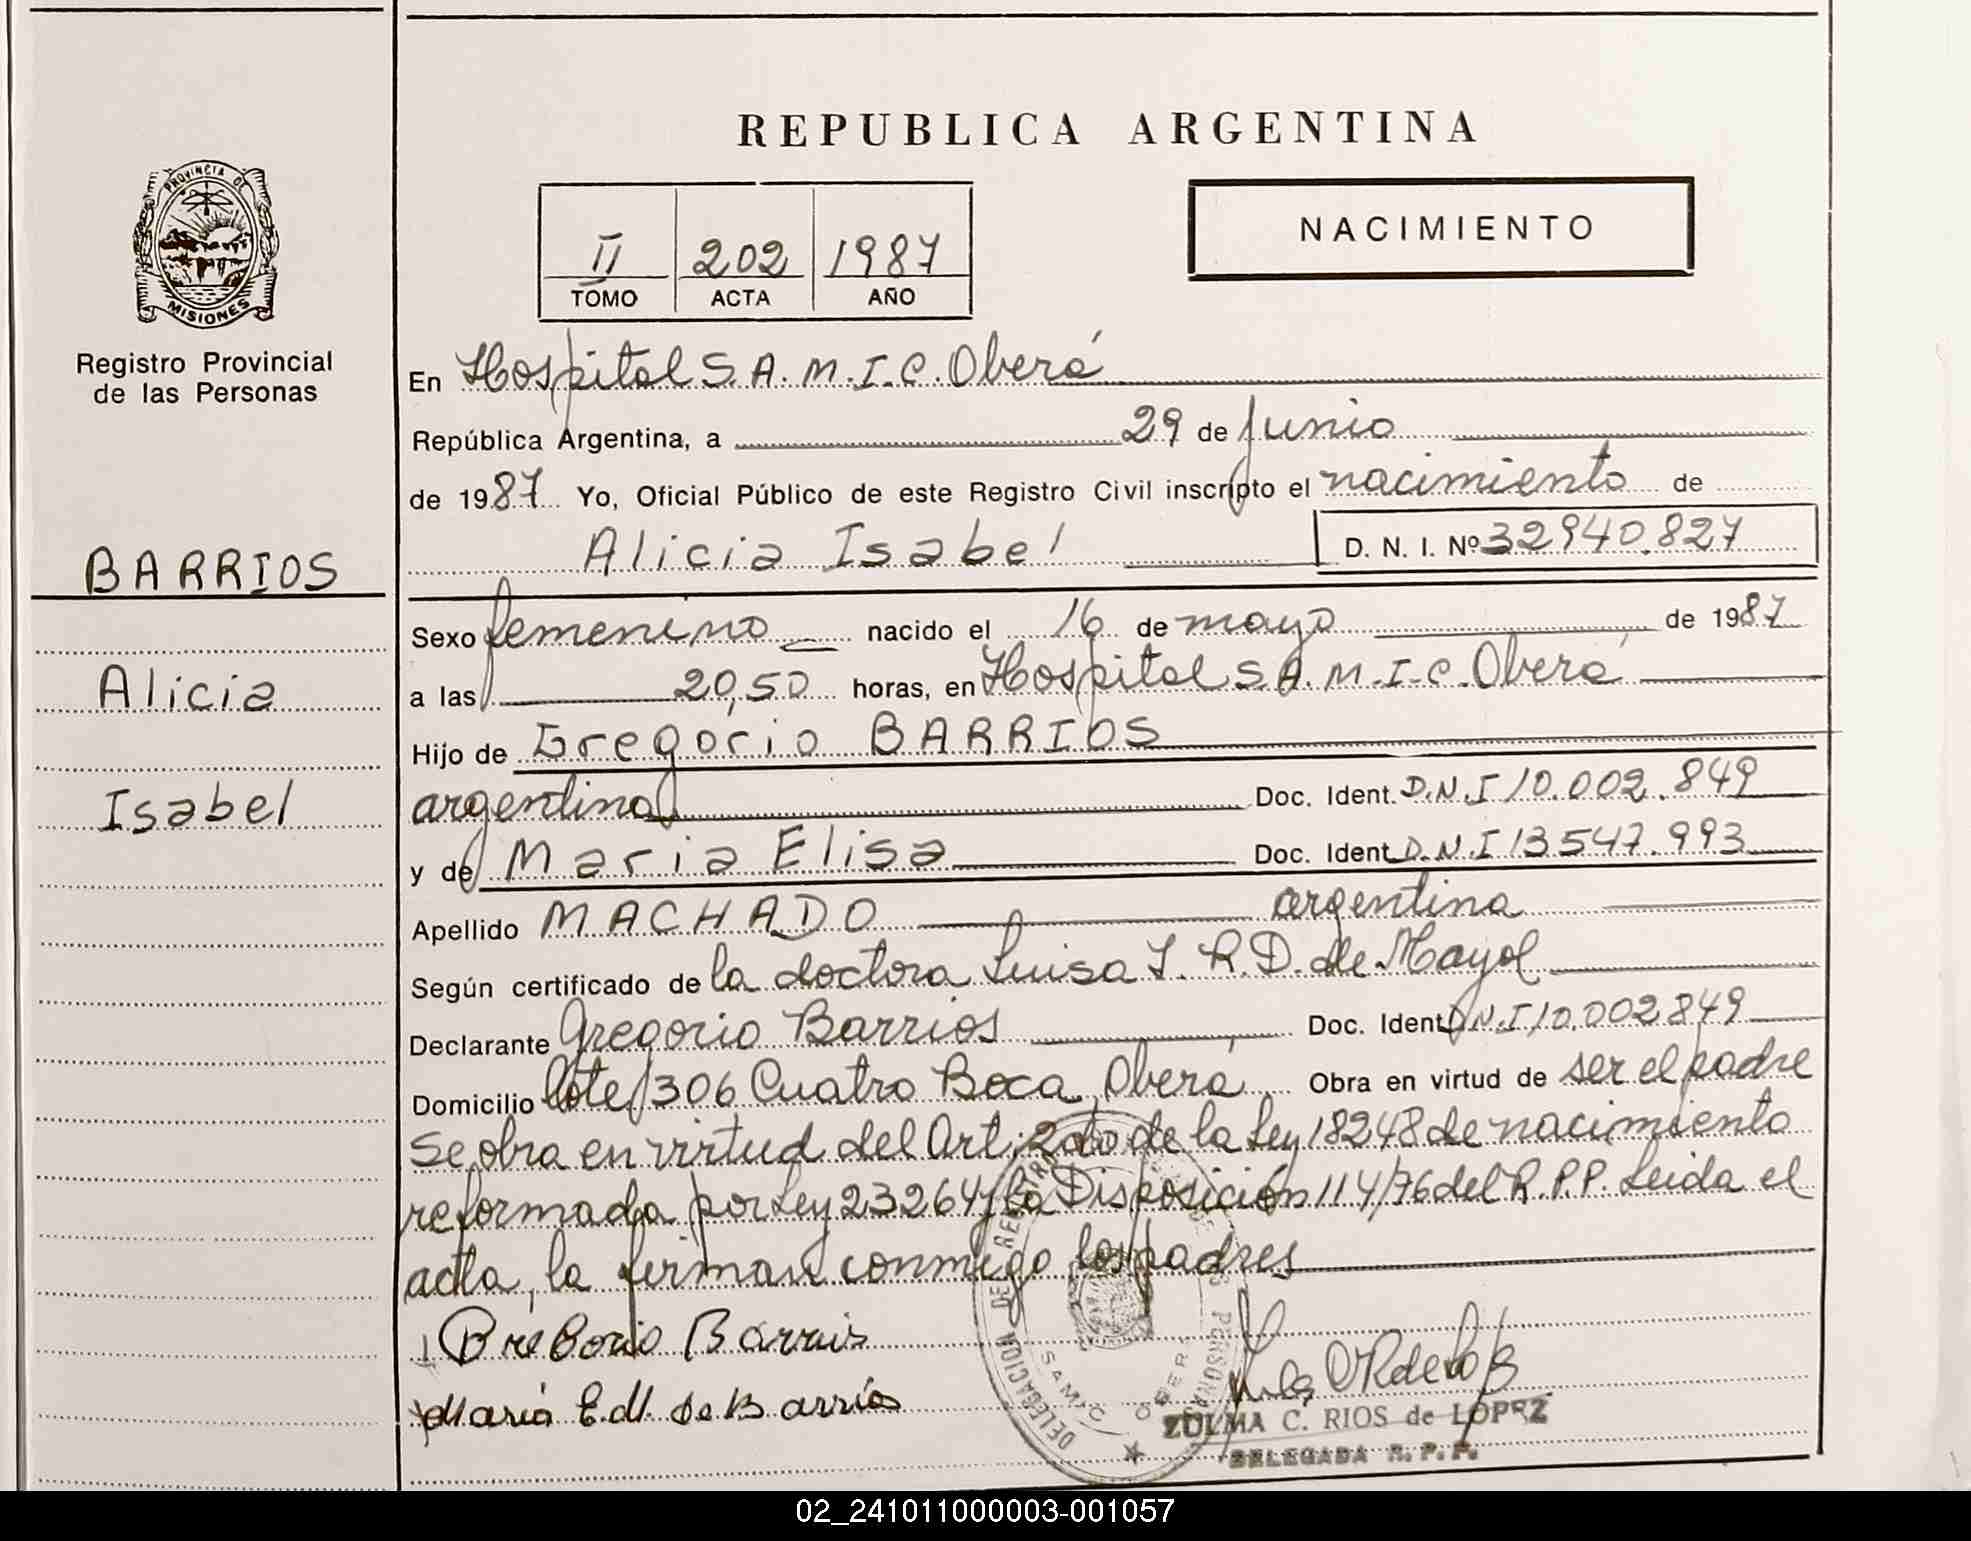 REPUBLICA ARGENTINA
PROVINCIA DE
MISIONES
Registro Provincial
de las Personas
II 202 1987
TOMO ACTA AÑO
NACIMIENTO
En Hospital S.A.M.I.C. Oberá
República Argentina, a 29 de Junio
de 1987 Yo, Oficial Público de este Registro Civil inscripto el nacimiento de
Alicia Isabel D. N. I. Nº 32940.827
BARRIOS
Alicia
Isabel
Sexo femenino nacido el 16 de mayo de 1987
a las 20,50 horas, en Hospital S.A.M.I.C. Oberá
Hijo de Gregorio BARRIOS
argentino Doc. Ident. D.N.I 10.002.849
y de Maria Elisa Doc. Ident. D.N.I 13547.993
Apellido MACHADO argentina
Según certificado de la doctora Luisa R.D. de Mayol
Declarante Gregorio Barrios Doc. Ident. D.N.I 10.002849
Domicilio lote 306 Cuatro Boca, Oberá Obra en virtud de ser el padre
Se obra en virtud del Art. 2do de la Ley 18248 de nacimiento
reformada por Ley 23264 y la Disposición 114/76 del R.P.P. Leida el
acta, la firman conmigo los padres
Gregorio Barrios
María E.M. de Barrios
DELEGACION DE REGISTRO
PERSONAS
SAMIC OBERA
ZULMA C. RIOS de LOPEZ
DELEGADA R. P. P.
02_241011000003-001057